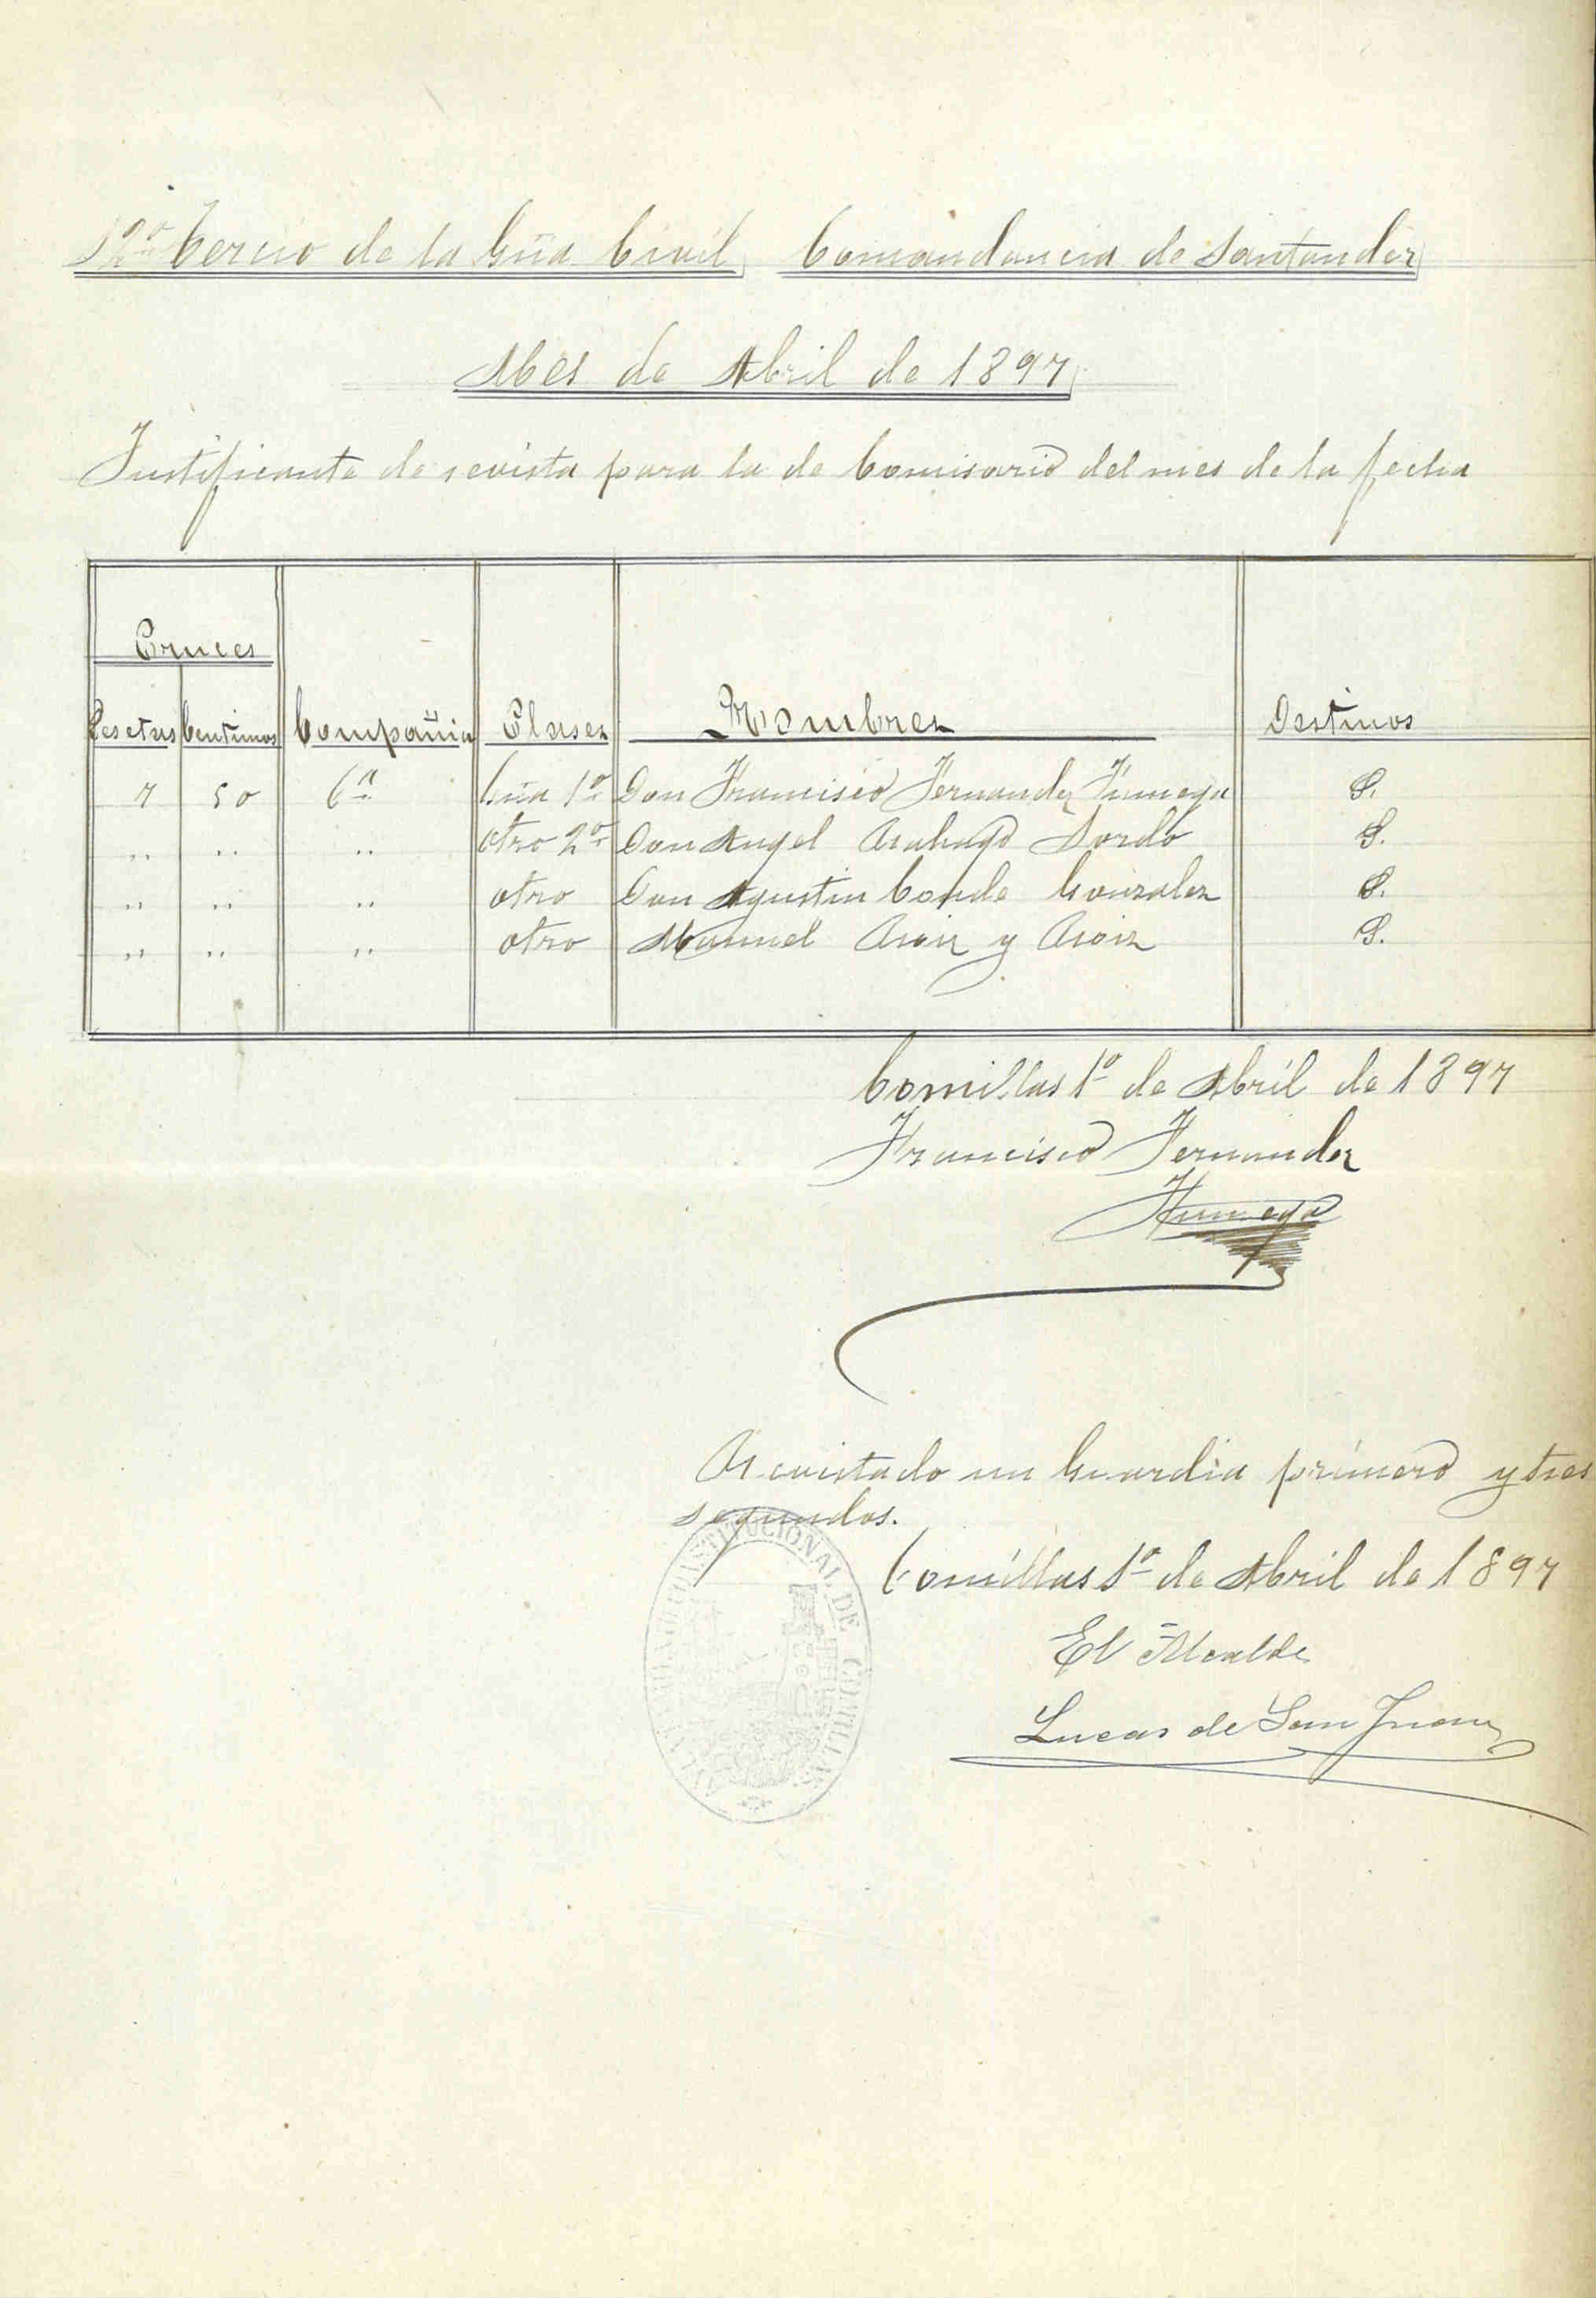 12º Tercio de la Güa Civil Comandancia de Santander
Mes de Abril de 1897
Justificante de revista para la de Comisario del mes de la fecha
Cruces
Pesetas Centimos Compañia Clases Nombres Destinos
7 50 6ª Güa 1º Don Francisco Fernandez Fumega P.
" " " otro 2º Don Angel Sordo P.
" " " otro Don Agustin Conde Gonzalez P.
" " " otro Manuel y P.
Comillas 1º de Abril de 1897
Francisco Fernandez
Fumega
Revistado un Guardia primero y tres
segundos.
Comillas 1º de Abril de 1897
El Alcalde
Lucas de San Juan
AYUNTAMIENTO CONSTITUCIONAL DE COMILLAS